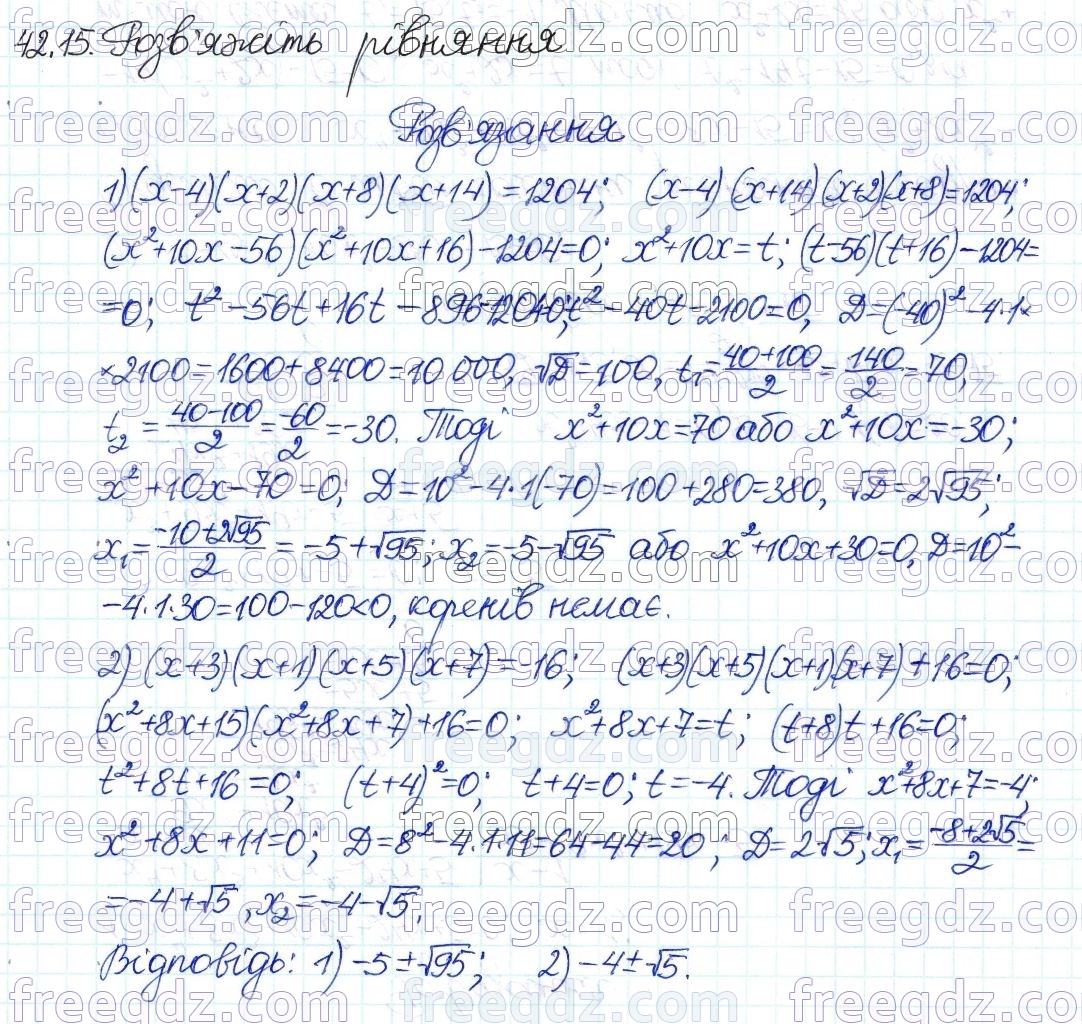 42.15. Розв'яжіть рівняння
Розв'язання
1) (x-4)(x+2)(x+8)(x+14)=1204; (x-4)(x+14)(x+2)(x+8)=1204;
(x²+10x-56)(x²+10x+16)-1204=0; x²+10x=t; (t-56)(t+16)-1204=
=0; t²-56t+16t-896-1204=0; t²-40t-2100=0, D=(-40)²-4·1×
×2100=1600+8400=10 000, √D=100, t₁=(40+100)/2=140/2=70,
t₂=(40-100)/2=-60/2=-30. Тоді x²+10x=70 або x²+10x=-30;
x²+10x-70=0; D=10²-4·1(-70)=100+280=380, √D=2√95;
x₁=(-10+2√95)/2=-5+√95; x₂=-5-√95 або x²+10x+30=0, D=10²-
-4·1·30=100-120<0, коренів немає.
2) (x+3)(x+1)(x+5)(x+7)=-16; (x+3)(x+5)(x+1)(x+7)+16=0;
(x²+8x+15)(x²+8x+7)+16=0; x²+8x+7=t; (t+8)t+16=0;
t²+8t+16=0; (t+4)²=0; t+4=0; t=-4. Тоді x²+8x+7=-4;
x²+8x+11=0; D=8²-4·1·11=64-44=20; D=2√5; x₁=(-8+2√5)/2=
=-4+√5, x₂=-4-√5.
Відповідь: 1) -5±√95; 2) -4±√5.
freegdz.com